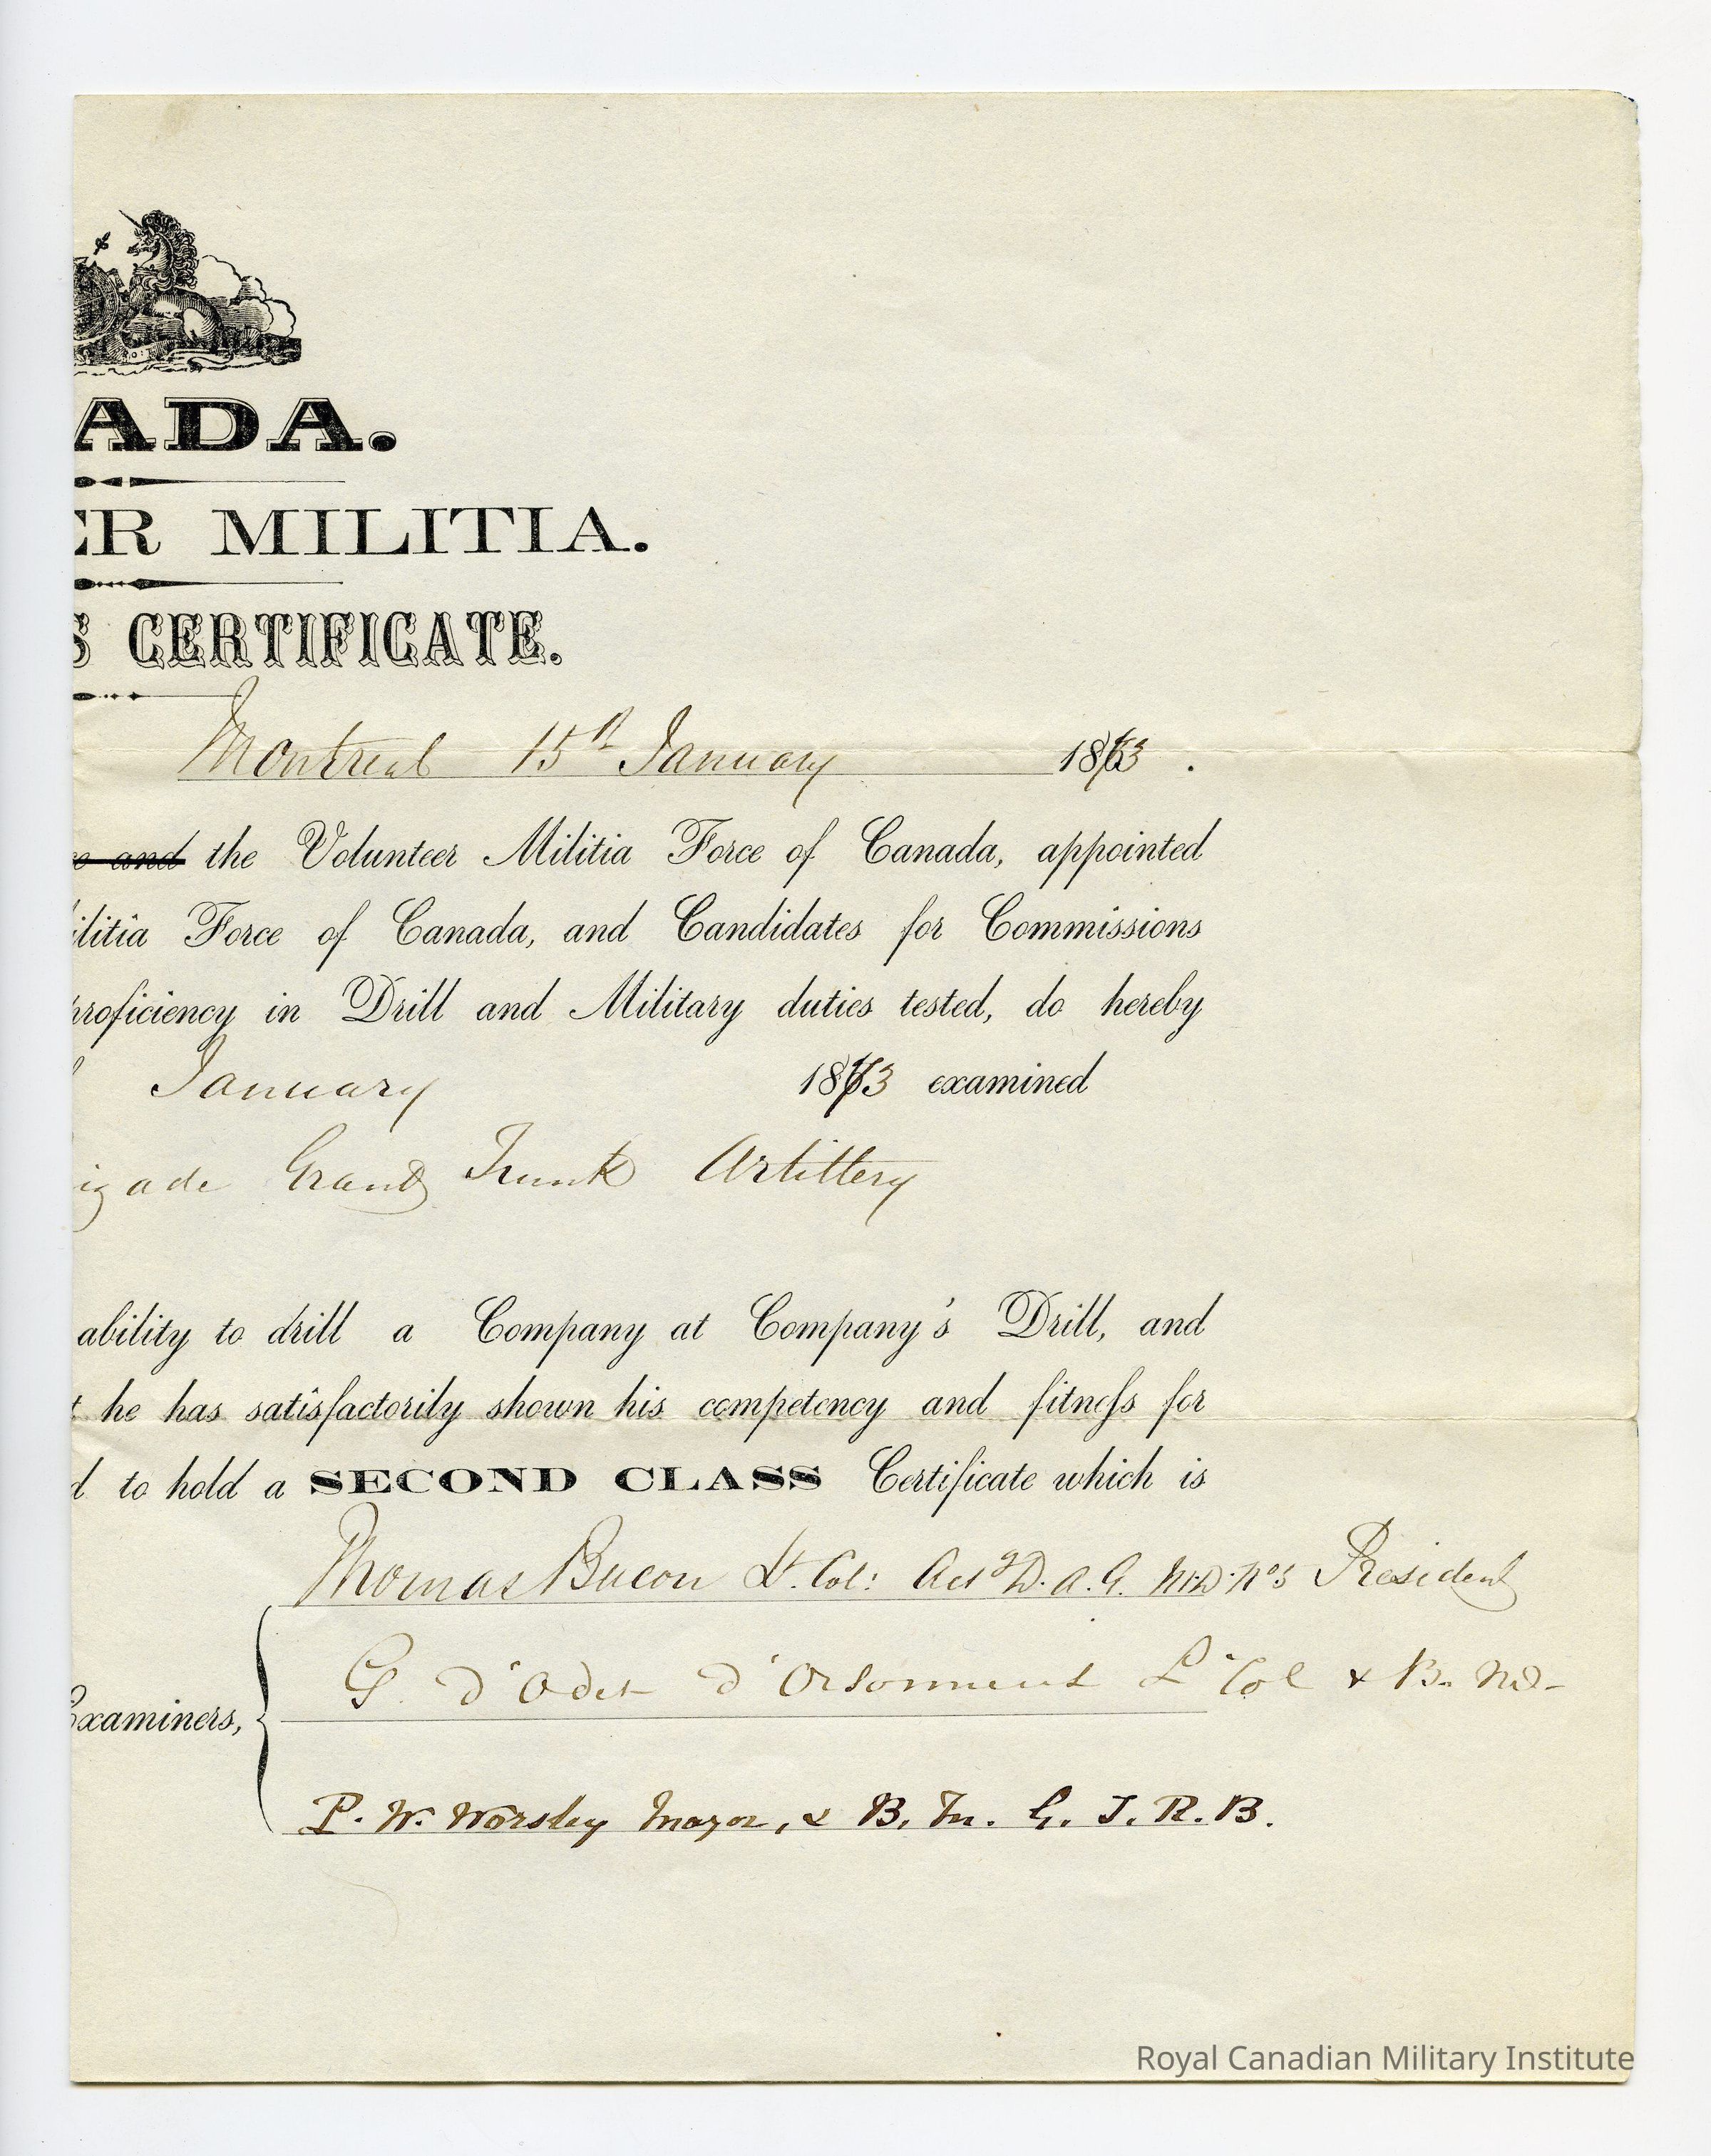 ADA.
ER MILITIA.
S CERTIFICATE.
Montreal 15th January 1863.
and the Volunteer Militia Force of Canada, appointed
ilitia Force of Canada, and Candidates for Commissions
proficiency in Drill and Military duties tested, do hereby
January 1863 examined
igade Grand Trunk Artillery
ability to drill a Company at Company's Drill, and
t he has satisfactorily shown his competency and fitness for
d to hold a SECOND CLASS Certificate which is
Thomas Bacon Lt. Col: Actg D. A. G. M:D: No 5 President
G. d'Odet d'Orsonnens Lt Col & B. M.
Examiners,
P. W. Worsley Major, & B. M. G. T. R. B.
Royal Canadian Military Institute